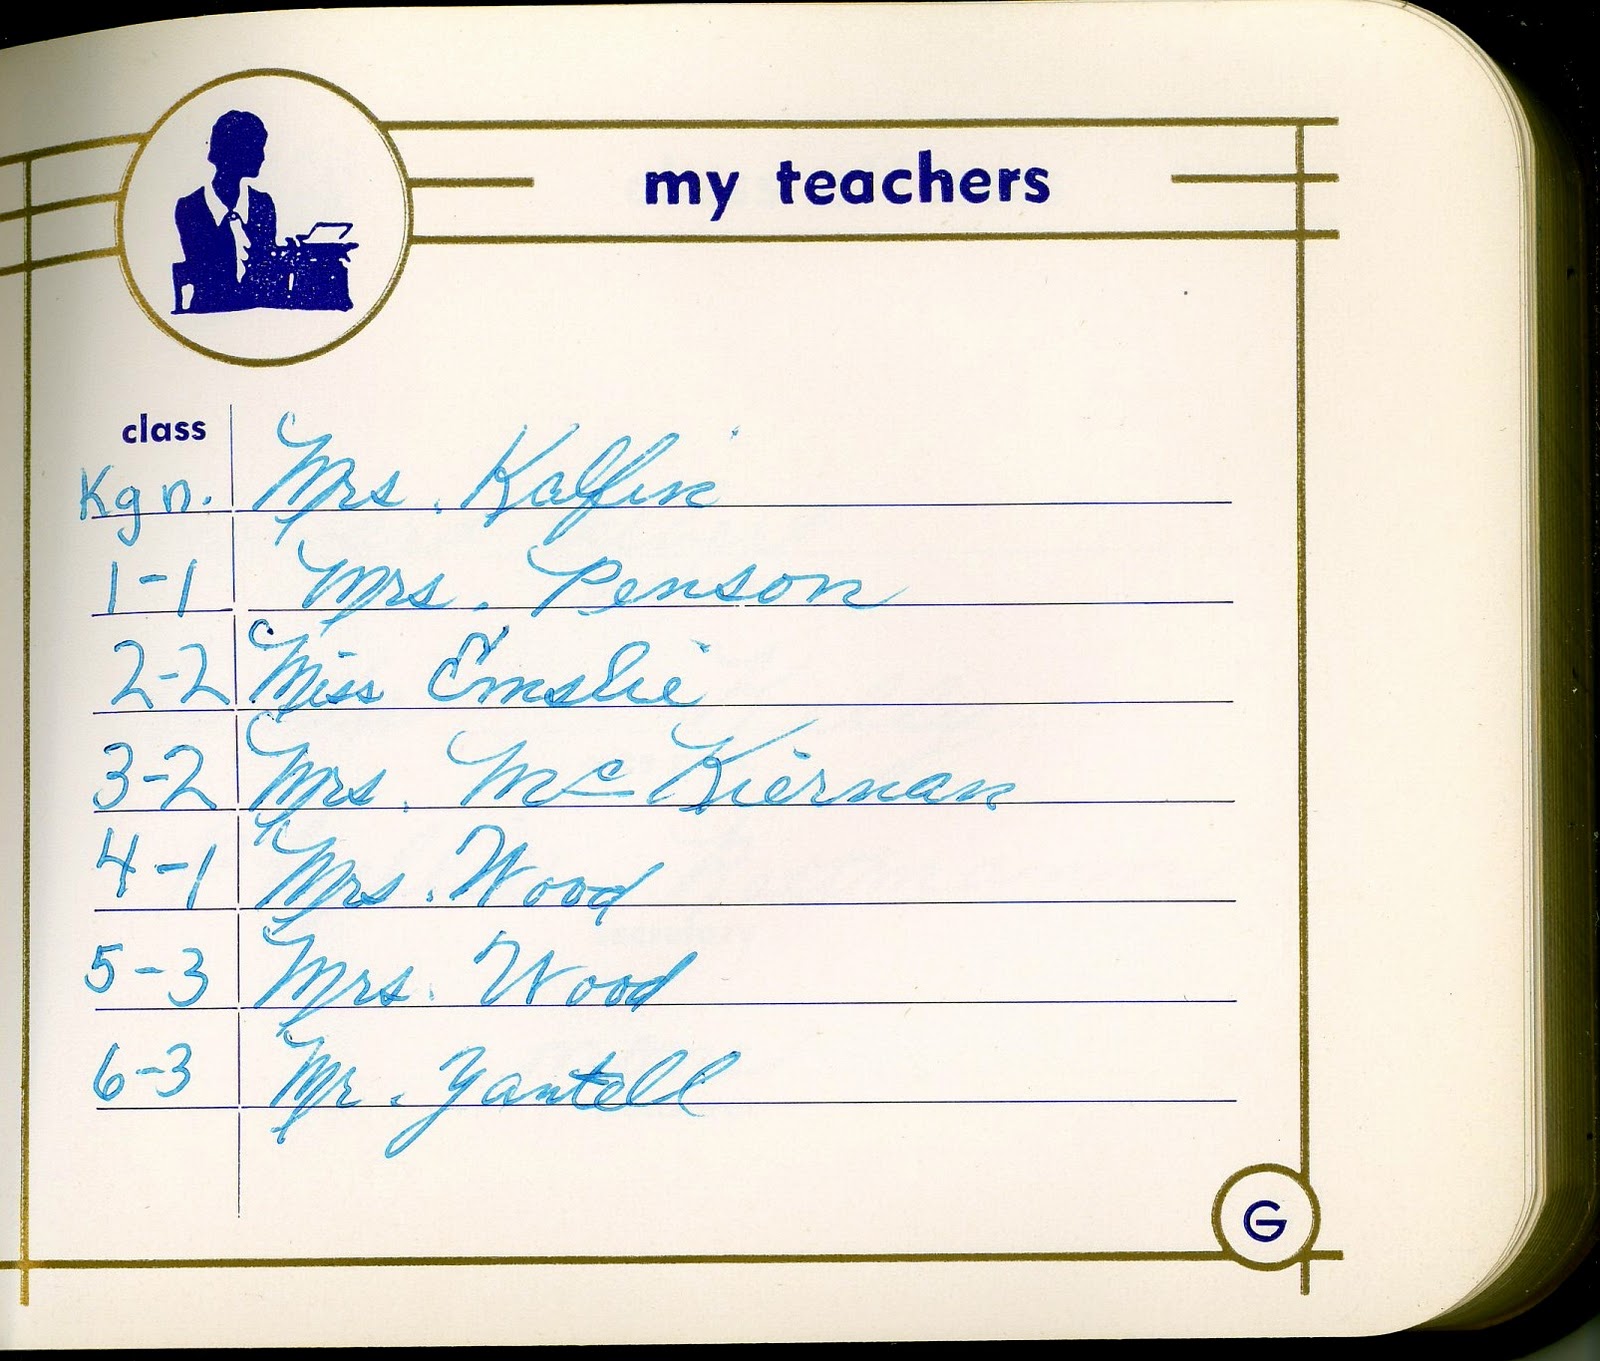 my teachers
class
Kgn. Mrs. Kalfin
1-1 Mrs. Penson
2-2 Miss Emslie
3-2 Mrs. McKiernan
4-1 Mrs. Wood
5-3 Mrs. Wood
6-3 Mr. Yantell
G